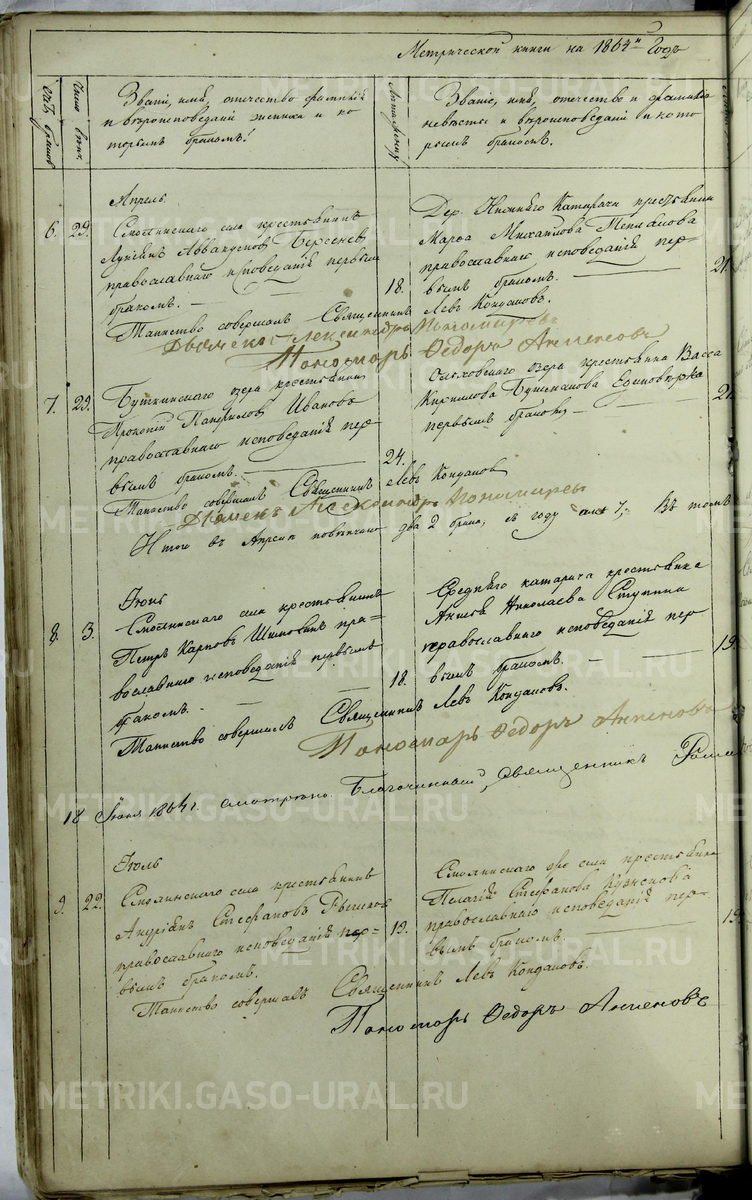 Метрической книги на 1864й Годъ
Счетъ браковъ
Число вѣнч.
Званіе, имя, отечество фамилія
и вѣроисповѣданіе жениха и ко
торымъ бракомъ!
Лѣта жениху
Званіе, имя, отечество и фамилія
невѣсты и вѣроисповѣданіе и кото
рымъ бракомъ.
Апрель.
6. 29. Смолинскаго села крестьянинъ
Аввакумовъ Берсенев,
православнаго исповѣданія первымъ
бракомъ. — 18.
Дер. Нижняго Катарача крестьянин
Марѳа Михайлова
православнаго исповѣданія пер=
вымъ бракомъ. — 21.
Таинство совершалъ Священникъ Левъ Кондаковъ.
Дьячекъ Александръ Пономаревъ
Пономарь Ѳедоръ
7. 29. Буткинскаго озера крестьянинъ
Прокопій Ивановъ
православнаго исповѣданія пер=
вымъ бракомъ. — 24.
озера крестьянка Васса
Кириллова Единовѣрка
первымъ бракомъ, — 21
Таинство совершалъ Священникъ Левъ Кондаков
Дьячекъ Александръ Пономаревъ
Итого въ Апрелѣ повѣнчано два 2 брака, съ году 7, Въ томъ
Іюнь
8. 3. Смолинскаго села крестьянинъ
Петръ Карповъ пра=
вославнаго исповѣданія первымъ
бракомъ. — 18.
Средняго катарача крестьянка
Николаева Ступина
православнаго исповѣданія пер
вымъ бракомъ. — 19.
Таинство совершалъ Священникъ Левъ Кондаковъ.
Пономарь Ѳедоръ
18 Іюня 1864 г. смотрѣно. Благочинный, священникъ
Іюль
9. 22. Смолинскаго села крестьянинъ
Андріянъ Стефановъ
православнаго исповѣданія пер= 19.
вымъ бракомъ.
Смолинскаго же села крестьянка
Пелагія Стефанова
православнаго исповѣданія пер=
вымъ бракомъ. — 19.
Таинство совершалъ Священникъ Левъ Кондаковъ.
Пономарь Ѳедоръ
METRIKI.GASO-URAL.RU